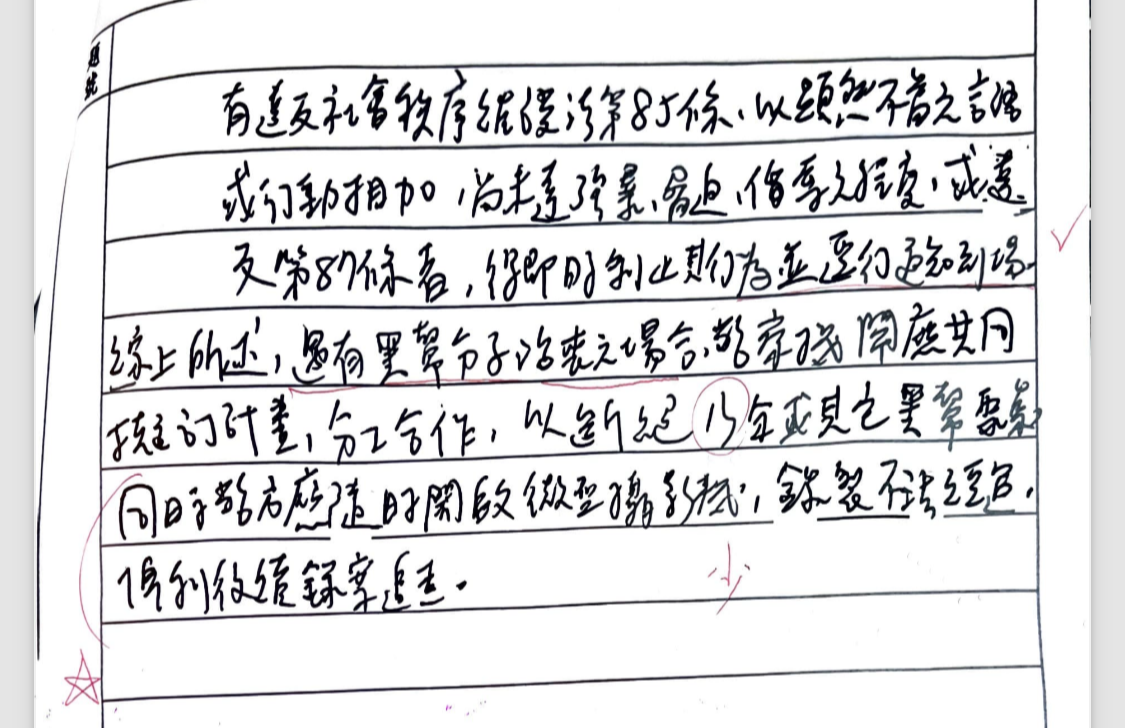 題號
有違反社會秩序維護法第85條、以顯然不當之言語
或行動相加,尚未達強暴、脅迫、侮辱之程度,或違
反第87條者,得即時制止其行為並逕行通知到場。
綜上所述,遇有黑幫份子治喪之場合,警察機關應共同
擬訂計畫,分工合作,以斷絕少年或其它黑幫聚眾
同時警方應隨時開啟微型攝影機,錄製不法經過,
俾利後續錄案追查。